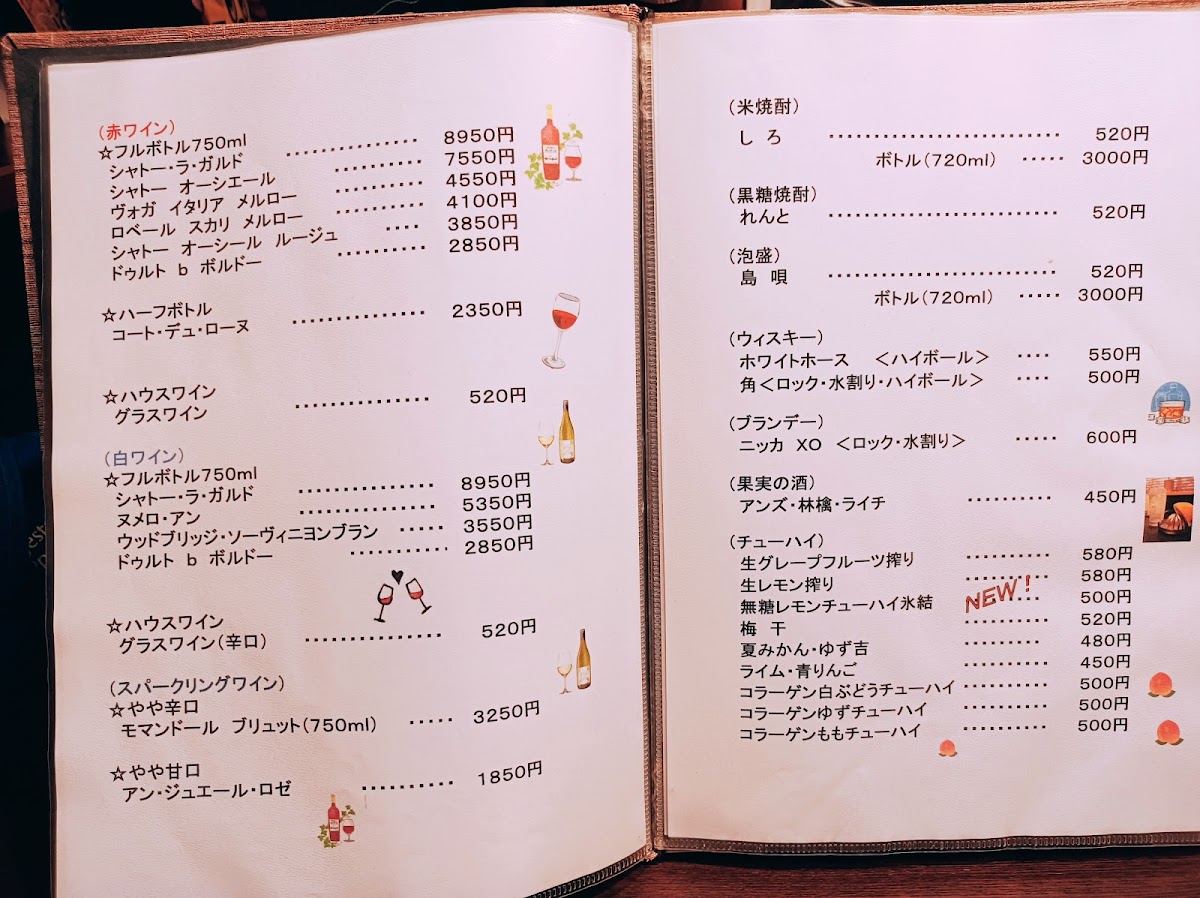 (赤ワイン)
☆フルボトル750ml
シャトー・ラ・ガルド ・・・・・・・・・・・・・ 8950円
シャトー オーシエール ・・・・・・・・・ 7550円
ヴォガ イタリア メルロー ・・・・・・・・・ 4550円
ロベール スカリ メルロー ・・・・・・・・・ 4100円
シャトー オーシール ルージュ ・・・・ 3850円
ドゥルト b ボルドー ・・・・・・・・・ 2850円
☆ハーフボトル
コート・デュ・ローヌ ・・・・・・・・・・・・・ 2350円
☆ハウスワイン
グラスワイン ・・・・・・・・・・・・・ 520円
(白ワイン)
☆フルボトル750ml
シャトー・ラ・ガルド ・・・・・・・・・・・・・ 8950円
ヌメロ・アン ・・・・・・・・・・・・・ 5350円
ウッドブリッジ・ソーヴィニヨンブラン ・・・・・ 3550円
ドゥルト b ボルドー ・・・・・・・・・ 2850円
☆ハウスワイン
グラスワイン(辛口) ・・・・・・・・・・・・・ 520円
(スパークリングワイン)
☆やや辛口
モマンドール ブリュット(750ml) ・・・・・ 3250円
☆やや甘口
アン・ジュエール・ロゼ ・・・・・・・・・ 1850円
(米焼酎)
しろ ・・・・・・・・・・・・・・・・・・・・・・ 520円
ボトル(720ml) ・・・・・ 3000円
(黒糖焼酎)
れんと ・・・・・・・・・・・・・・・・・・・・・・ 520円
(泡盛)
島 唄 ・・・・・・・・・・・・・・・・・・・・・・ 520円
ボトル(720ml) ・・・・・ 3000円
(ウィスキー)
ホワイトホース <ハイボール> ・・・・ 550円
角<ロック・水割り・ハイボール> ・・・・ 500円
(ブランデー)
ニッカ XO <ロック・水割り> ・・・・・ 600円
(果実の酒)
アンズ・林檎・ライチ ・・・・・・・・・ 450円
(チューハイ)
生グレープフルーツ搾り ・・・・・・・・・ 580円
生レモン搾り ・・・・・・・・・ 580円
無糖レモンチューハイ氷結 NEW! ・・・・・ 500円
梅 干 ・・・・・・・・・ 520円
夏みかん・ゆず吉 ・・・・・・・・・ 480円
ライム・青りんご ・・・・・・・・・ 450円
コラーゲン白ぶどうチューハイ ・・・・・・・・・ 500円
コラーゲンゆずチューハイ ・・・・・・・・・ 500円
コラーゲンももチューハイ ・・・・・・・・・ 500円